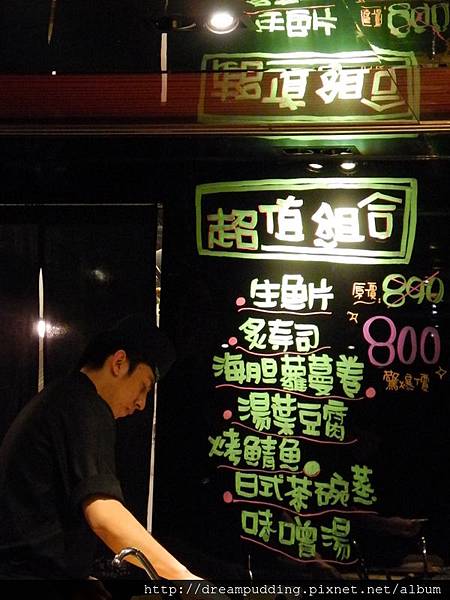 生魚片
890
超值組合
超值組合
生魚片 原價 890
炙寿司 800
海胆蘿蔓姜 驚爆價
湯葉豆腐
烤鯖魚
日式茶碗蒸
味噌湯
http://dreampudding.pixnet.net/album